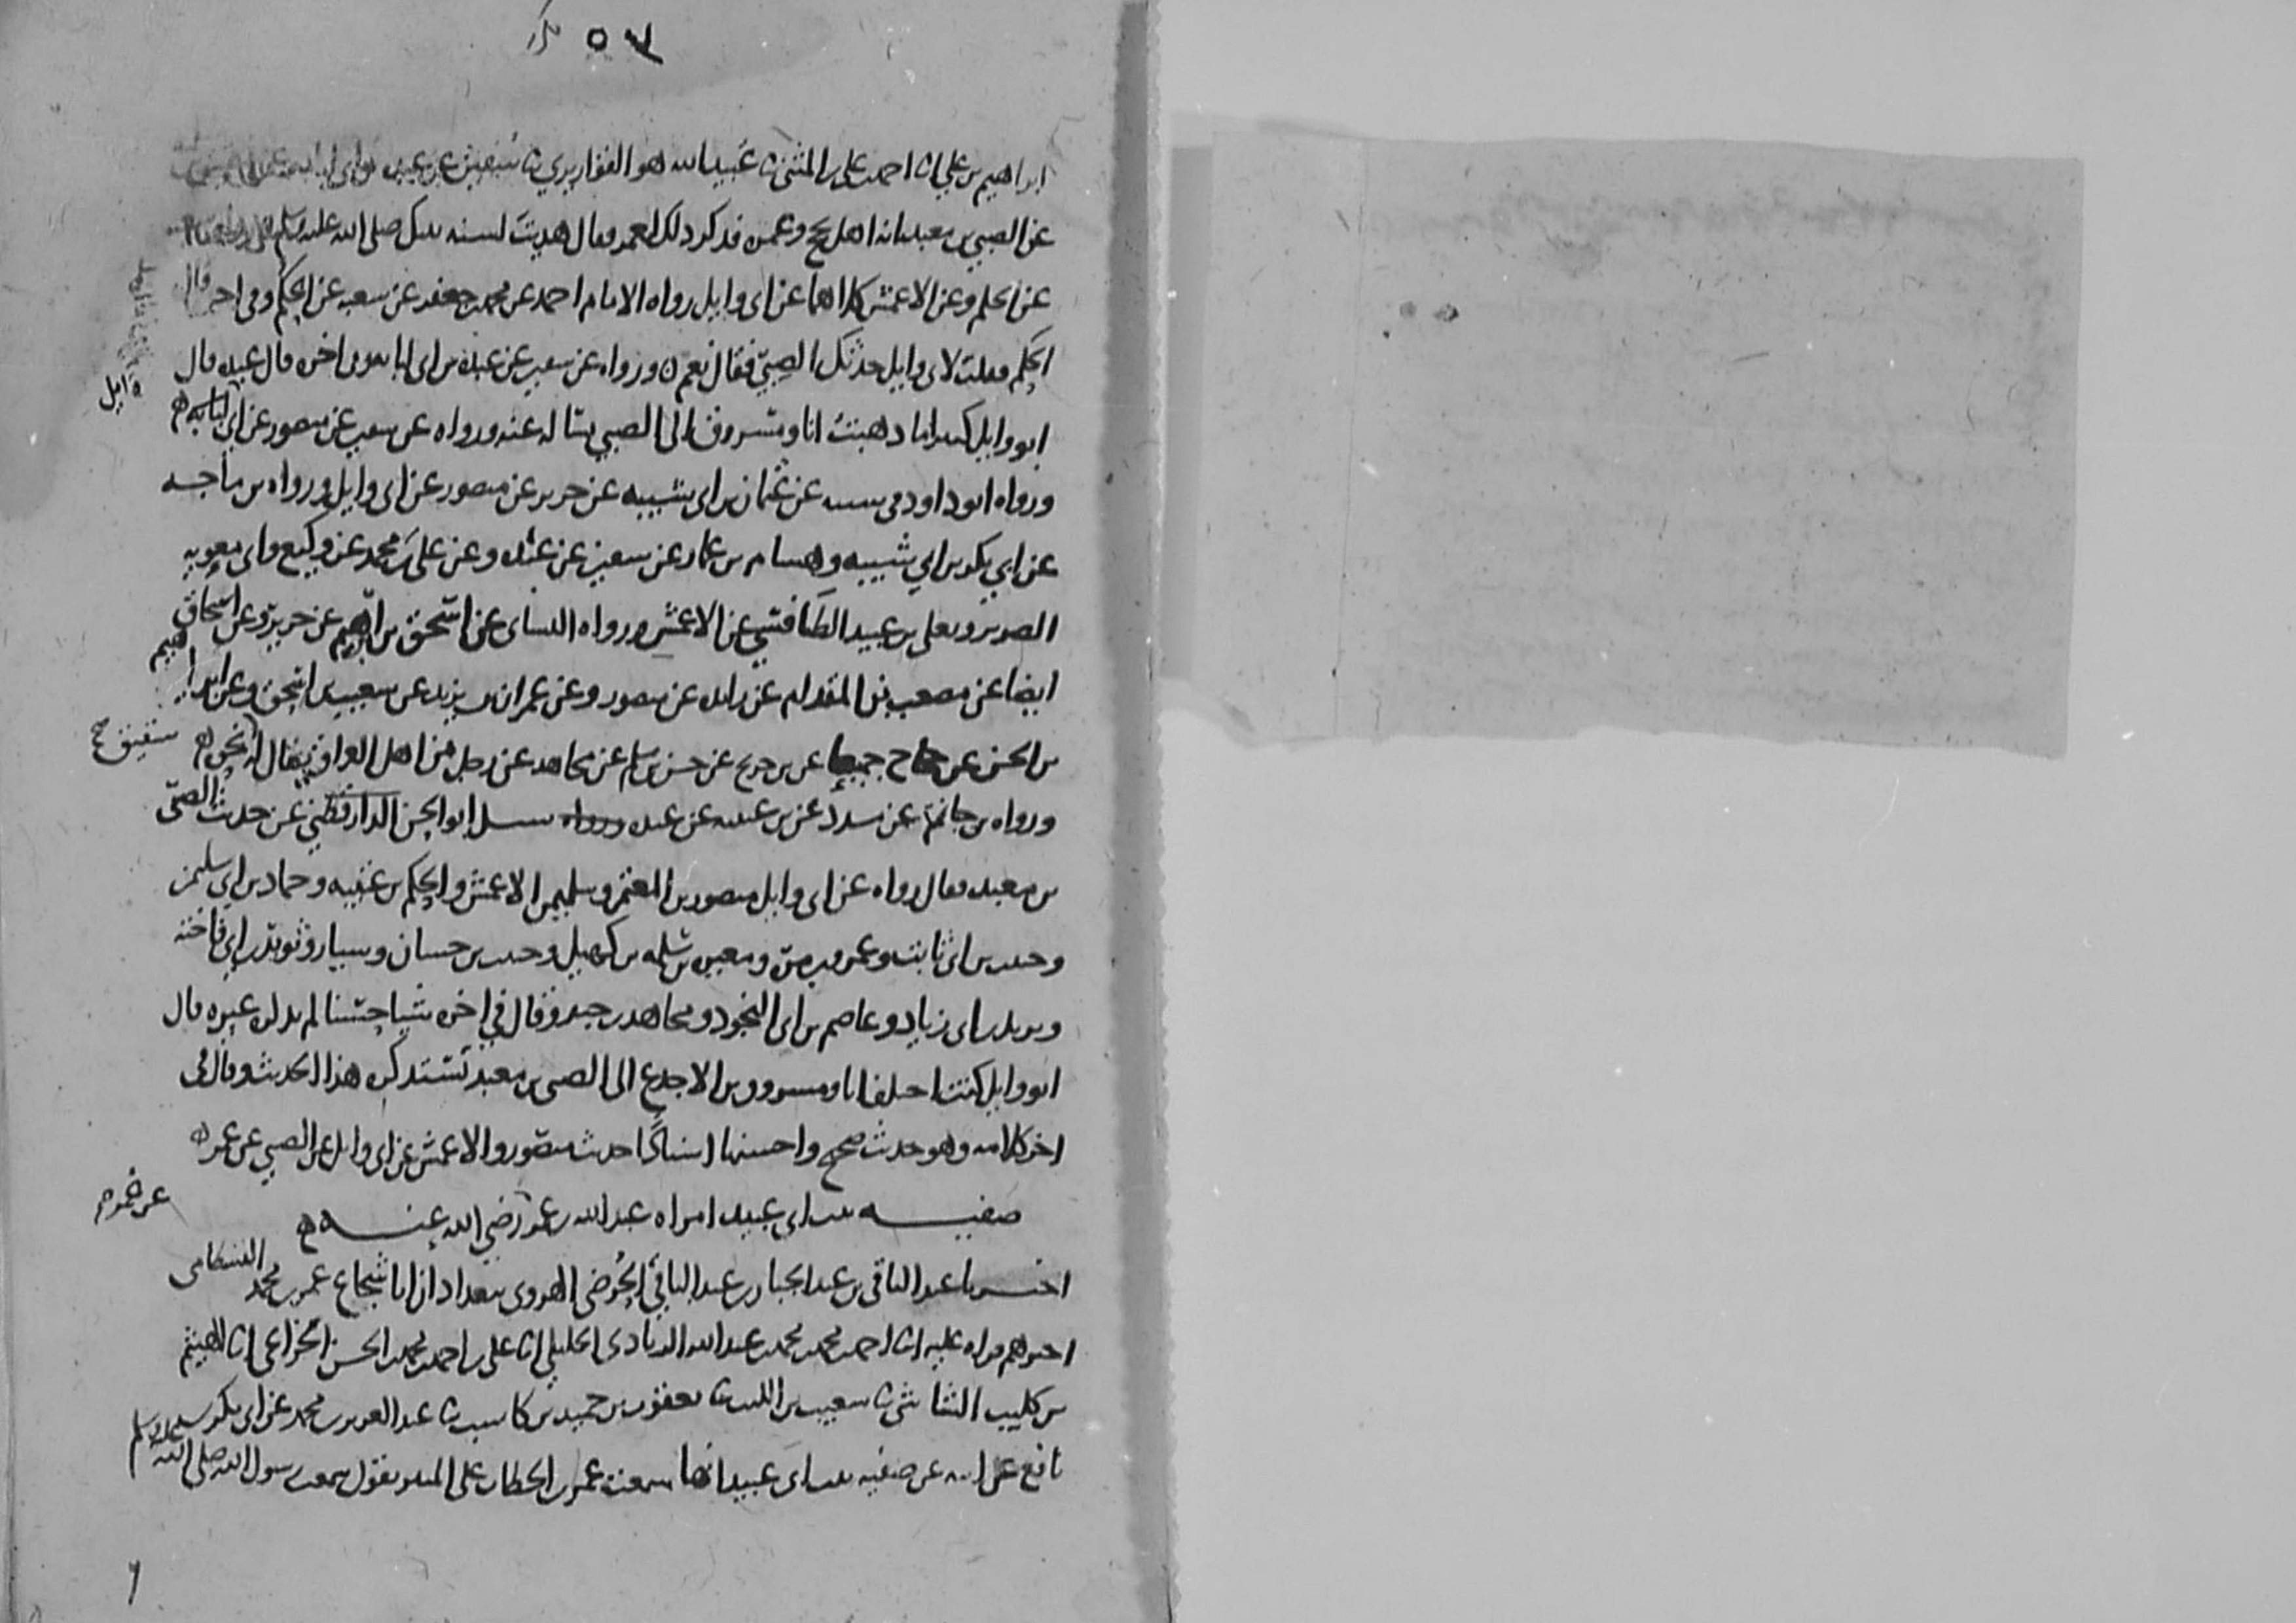 ٥٧
ابراهيم بن علي انا احمد بن علي بن المثنى نا عبيد الله هو القواريري نا سفين عن عبده بن ابي لبابه عن
عن الصبي بن معبد انه اهل بحج وعمره فذكر ذلك لعمر فقال هديت لسنه نبيك صلى الله عليه وسلم
عن الحكم وعن الاعمش كلاهما عن ابي وايل رواه الامام احمد عن محمد بن جعفر عن شعبه عن الحكم وفي اخره قال
الحكم فقلت لابي وايل حدثك الصبي فقال نعم ورواه عن سفين عن عبده بن ابي لبابه وفي اخره قال عبده قال
وايل
ابو وايل كثيرا ما ذهبت انا ومسروق الى الصبي نساله عنه ورواه عن سفين عن منصور عن ابي
ورواه ابو داود في سننه عن عثمان بن ابي شيبه عن جرير عن منصور عن ابي وايل ورواه بن ماجه
عن ابي بكر بن ابي شيبه وهشام بن عمار عن سفين عن عبده وعن علي بن محمد عن وكيع وابي معويه
الضرير ويعلى بن عبيد الطنافسي عن الاعمش ورواه النسائي عن اسحق بن ابرهيم عن جرير وعن اسحاق
ايضا عن مصعب بن المقدام عن زايده عن منصور وعن عمران بن يزيد عن شعيب بن اسحق وعن ابراهيم
بن الحسن عن حجاج جميعا عن بن جريج عن حسن بن مسلم عن مجاهد عن رجل من اهل العراق يقال له
شقيق صح
ورواه بن حاتم عن مسدد عن بن عيينه عن عبده سيل ابو الحسن الدارقطني عن حديث الصبي
بن معبد فقال رواه عن ابي وايل منصور بن المعتمر وسليمن الاعمش والحكم بن عتيبه وحماد بن ابي سليمن
وحبيب بن ابي ثابت وعمرو بن مره ومغيره وسلمه بن كهيل وحبيب بن حسان وسيار وثوير بن ابي فاخته
ويزيد بن ابي زياد وعاصم بن ابي النجود ومجاهد بن جبر وقال في اخره شيا حسنا لم يذكره غيره قال
ابو وايل كنت اختلف انا ومسروق بن الاجدع الى الصبي بن معبد نستذكره هذا الحديث وقال في
اخر كلامه وهو حديث صحيح واحسنها اسنادا حديث منصور والاعمش عن ابي وايل عن الصبي عن عمر
صفيه بنت ابي عبيد امراه عبد الله بن عمر رضي الله عنه
عن عمر
اخبرنا عبد الباقي بن عبد الجبار بن عبد الباقي الحرضي الهروي ببغداد ان ابا شجاع عمر بن محمد البسطامي
اخبرهم قراه عليه انا احمد بن محمد بن محمد بن عبد الله الزيادي الخليلي انا علي بن احمد بن محمد بن الحسن الخزاعي انا الهيثم
بن كليب الشاشي نا شعيب بن الليث نا يعقوب بن حميد بن كاسب نا عبد العزيز بن محمد عن ابي بكر بن
نافع عن ابيه عن صفيه بنت ابي عبيد انها سمعت عمر بن الخطاب على المنبر يقول سمعت رسول الله صلى الله عليه وسلم